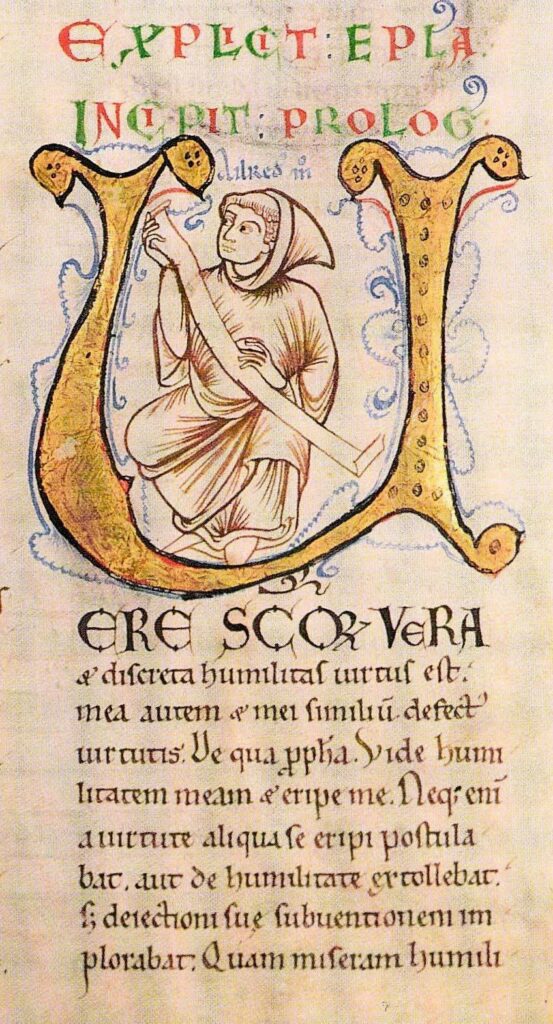 EXPLICIT: EPLA
INCIPIT: PROLOG'
Ailred' m̄
U
ERE SCOꝜ VERA
& discreta humilitas uirtus est.
mea autem & mei similiū. defect'
uirtutis. De qua ꝓph̄a. Vide humi
litatem meam & eripe me. Neq; enī
a uirtute aliqua se eripi postula
bat. aut de humilitate extollebat.
s; deiectioni suę subuentionem im
plorabat. Quam miseram humili